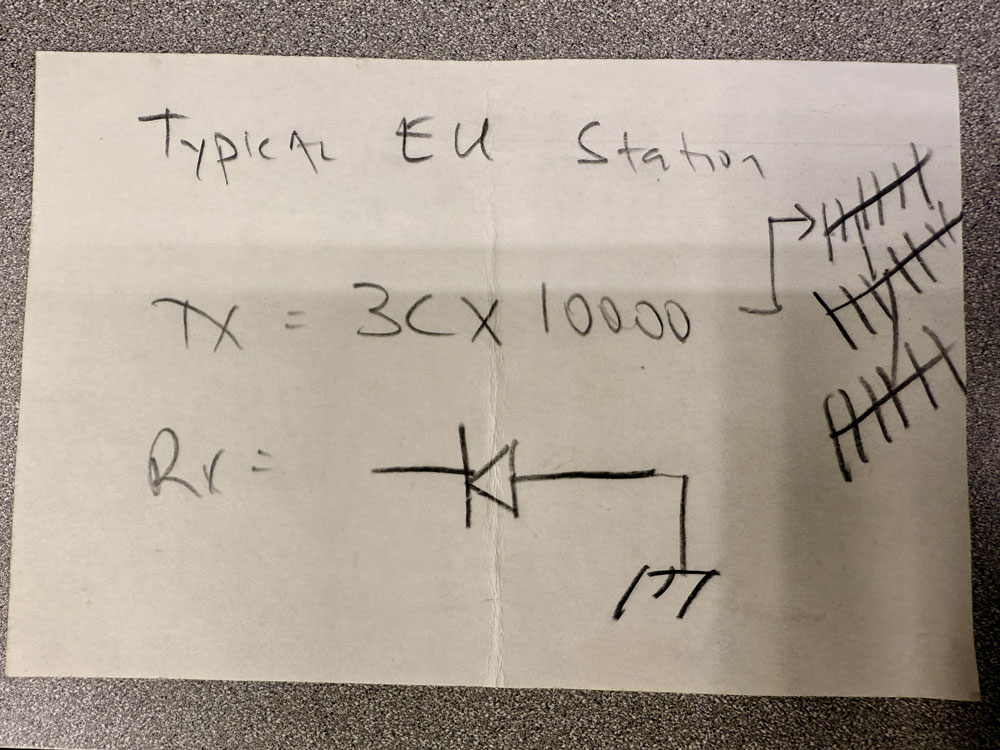 Typical EU Station
TX = 3CX 10000
Rx =